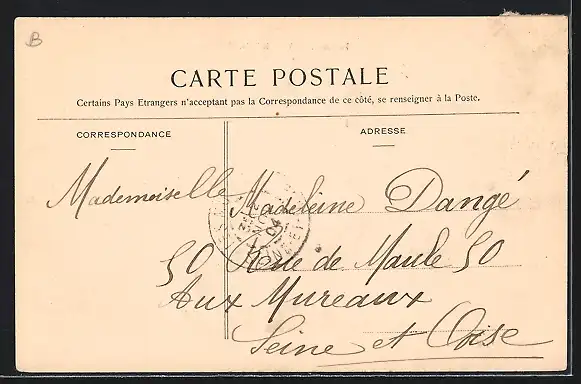 B
CARTE POSTALE
Certains Pays Etrangers n'acceptant pas la Correspondance de ce côté, se renseigner à la Poste.
CORRESPONDANCE
ADRESSE
Mademoiselle Madeleine Dangé
50 Rue de Maule 50
Aux Mureaux
Seine et Oise